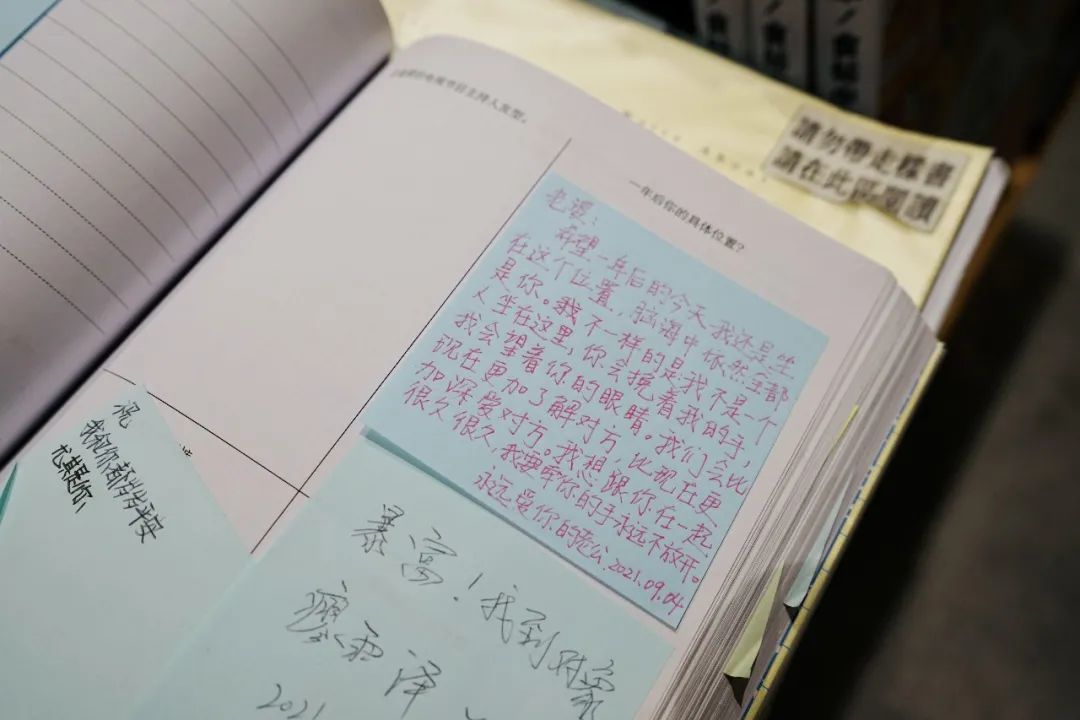 電视节目主持人发型。
請勿帶走樣書
請在此區閱讀
一年后你的具体位置?
老婆：
希望一年后的今天，我还是坐
在这个位置，脑海中依然全都
是你。我不一样的是我不是一个
人坐在这里，你会摸着我的手，
我会望着你的眼睛。我们会比
现在更加了解对方，比现在更
加深爱对方。我想跟你在一起
很久很久，我要牵你的手永远不放开。
永远爱你的老公.2021.09.04
祝
我和你都岁岁平安
尤其是你,
暴富！找到对象
2021